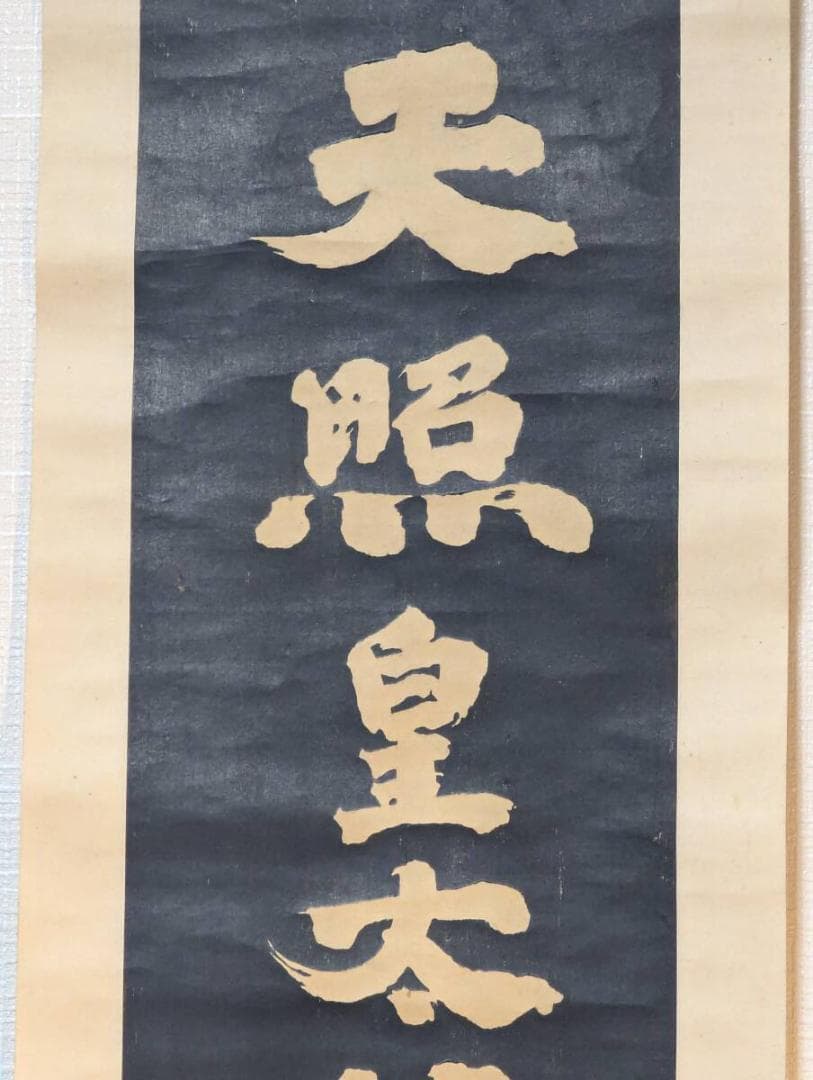 天照皇太